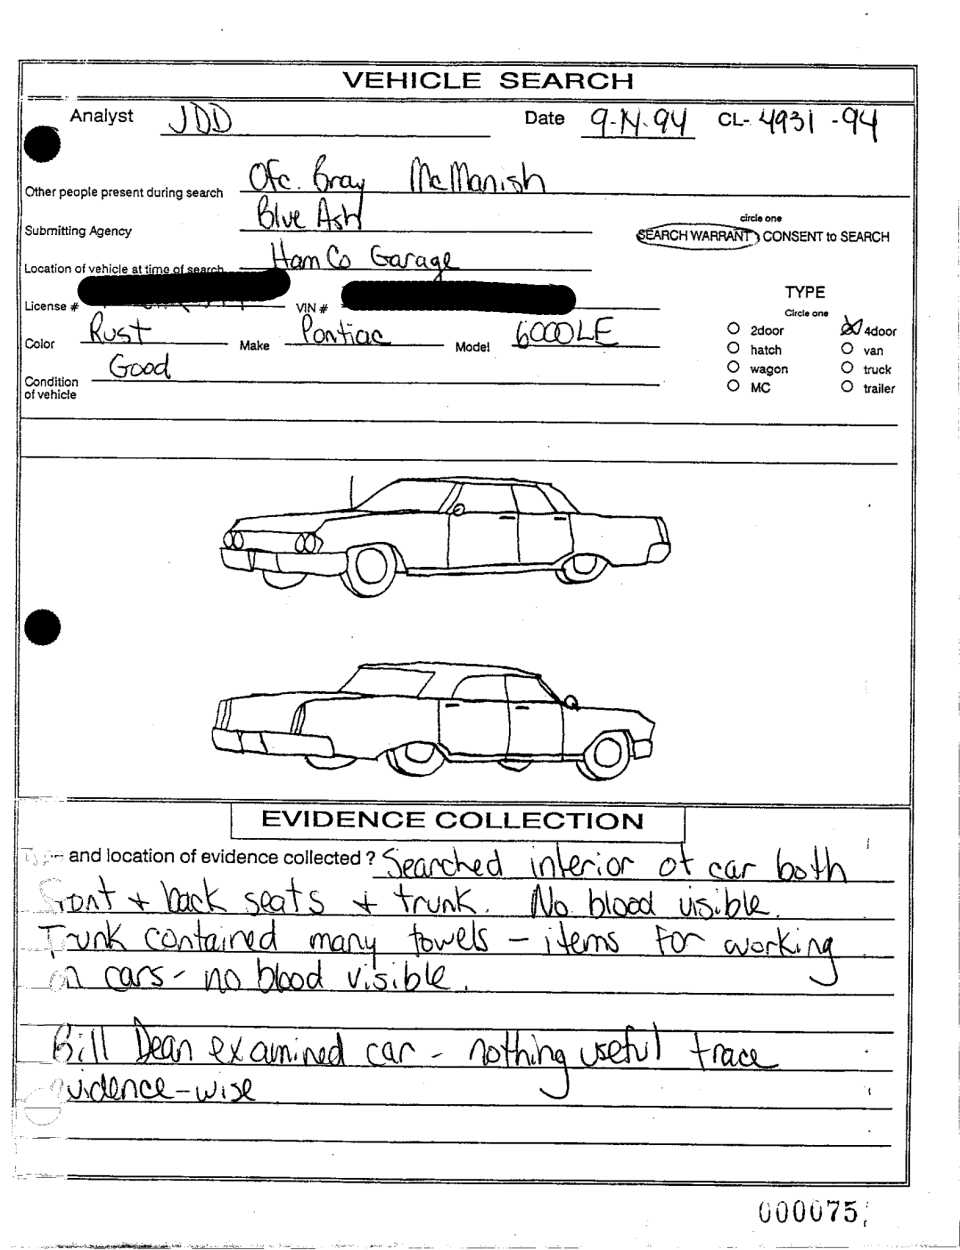 VEHICLE SEARCH
Analyst JDD Date 9-14-94 CL- 4931 -94
Other people present during search Ofc. Bray McManish
Submitting Agency Blue Ash
circle one
SEARCH WARRANT CONSENT to SEARCH
Location of vehicle at time of search Ham Co Garage
License # VIN #
TYPE
Circle one
Color Rust Make Pontiac Model 6000LE
2door 4door
hatch van
wagon truck
MC trailer
Condition Good
of vehicle
EVIDENCE COLLECTION
and location of evidence collected? Searched interior of car both
front + back seats + trunk. No blood visible.
Trunk contained many towels - items for working
on cars - no blood visible.
Bill Dean examined car - nothing useful trace
evidence-wise
000075